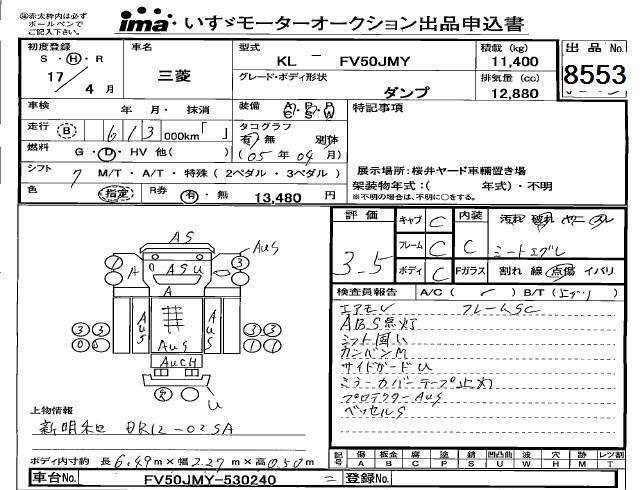 ㊟赤太枠内は必ず
ボールペンで
ご記入下さい。
ima いすゞモーターオークション出品申込書
初度登録 車名 型式 積載 (kg) 出品 No.
S・H・R 17 4 月 三菱 KL － FV50JMY 11,400 8553
グレード・ボディ形状 ダンプ 排気量 (cc) 12,880
車検 年 月・ 抹消 装備 特記事項
走行 B 6 1 3 000km「 」 タコグラフ 有・無 別体
燃料 G・D・HV 他( ) (05 年 04 月)
シフト 7 M/T・A/T・特殊 (2ペダル・3ペダル) 展示場所：桜井ヤード車輛置き場
色 指定 R券 有・無 13,480 円 架装物年式：( 年式)・不明
※不明の場合は、不明に○をする。
評価 3.5 キャブ C 内装 C
フレーム C シートスグレ
ボディ C Fガラス 割れ 線 点傷 イバリ
検査員報告 A/C ( ) B/T (
エアモレ フレームSC
ABS点灯
シフト固い
カンバンM
サイドガードU
ミラーカバーテープ止め
プロテクターAUS
ベッセルS
AS
AUS
A ASU
A
AUS AUS
AUS
AUCH
U
上物情報
新明和 DR12-02SA
ボディ内寸約 長 6.49m×幅 2.27m×高 0.50m
記号 傷A 板金B 腐C 塗P 錆S 凹凸曲U 波W 穴H 跡M レツ割T
車台No. FV50JMY-530240 登録No.